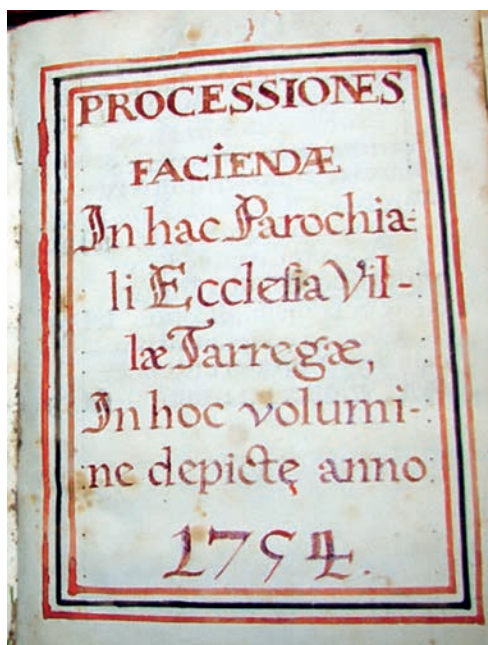 PROCESSIONES
FACIENDÆ
In hac Parochia=
li Ecclesia Vil-
læ Tarregæ,
In hoc volumi-
ne depictę anno
1754.